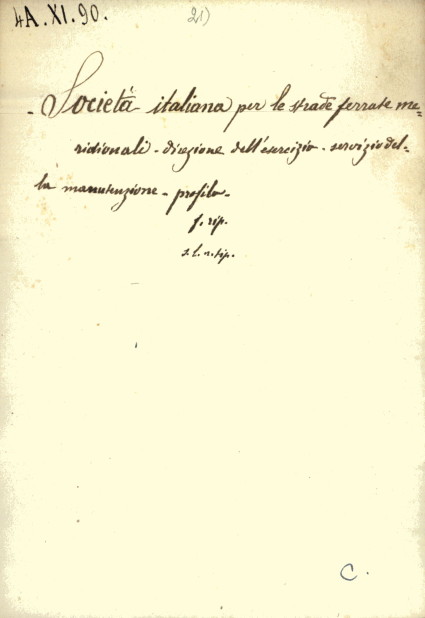 4A.XI.90. 21)
- Società italiana per le strade ferrate me-
ridionali - direzione dell'esercizio - servizio del-
la manutenzione - profilo -
f. rip.
s. l. n. tip.
C.